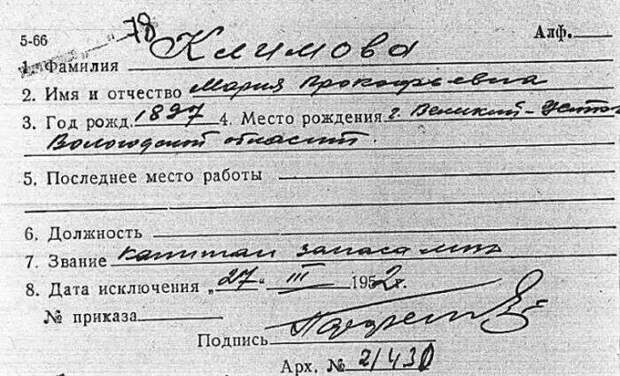 78
5-66 Алф.
1. Фамилия Климова
2. Имя и отчество Мария Прокофьевна
3. Год рожд. 1897 4. Место рождения г. Великий-Устюг
Вологодской области.
5. Последнее место работы
6. Должность
7. Звание капитан запаса
8. Дата исключения „27“ III 1952 г.
№ приказа
Подпись
Арх. № 21430